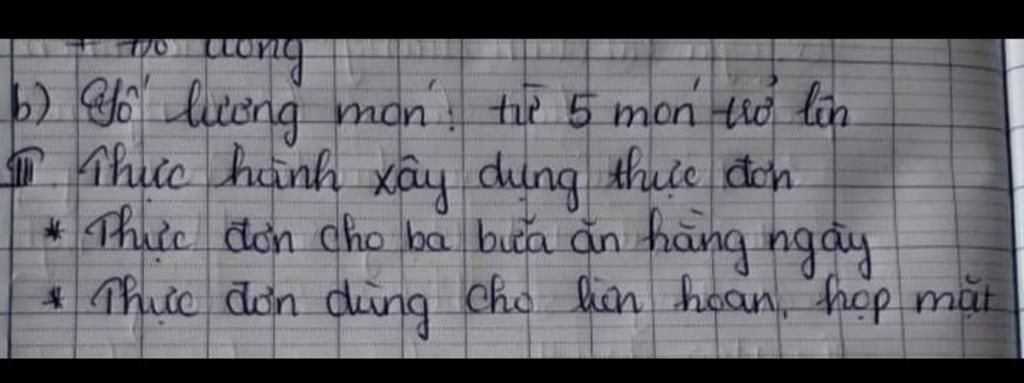 + Đồ uống
b) Số lượng món: từ 5 món trở lên
III Thực hành xây dựng thực đơn
* Thực đơn cho ba bữa ăn hàng ngày
* Thực đơn dùng cho liên hoan, họp mặt